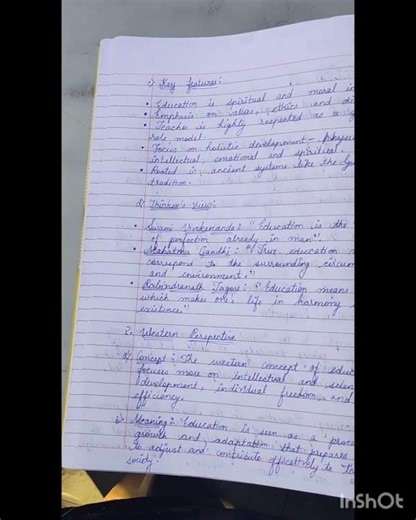 c) Key features:
• Education is spiritual and moral in
• Emphasis on values, ethics and
• Teacher is highly respected as a
role model.
• Focus on holistic development-
intellectual emotional and spiritual.
• Rooted in ancient systems like the
tradition.
d) Thinker's View:
• Swami Vivekananda: "Education is the
of perfection already in man".
• Mahatma Gandhi: "True education
correspond to the surrounding circum
and environment."
• Rabindranath Tagore: "Education means
which makes one life in harmony
existence."
2. Western Perspective
a) Concept: The western concept of educ
focuses more on intellectual and
development, individual freedom, and
efficiency.
b) Meaning: Education is seen as a proc
growth and adaptation that prepares
to adjust and contribute effectively to
society.
InShOt